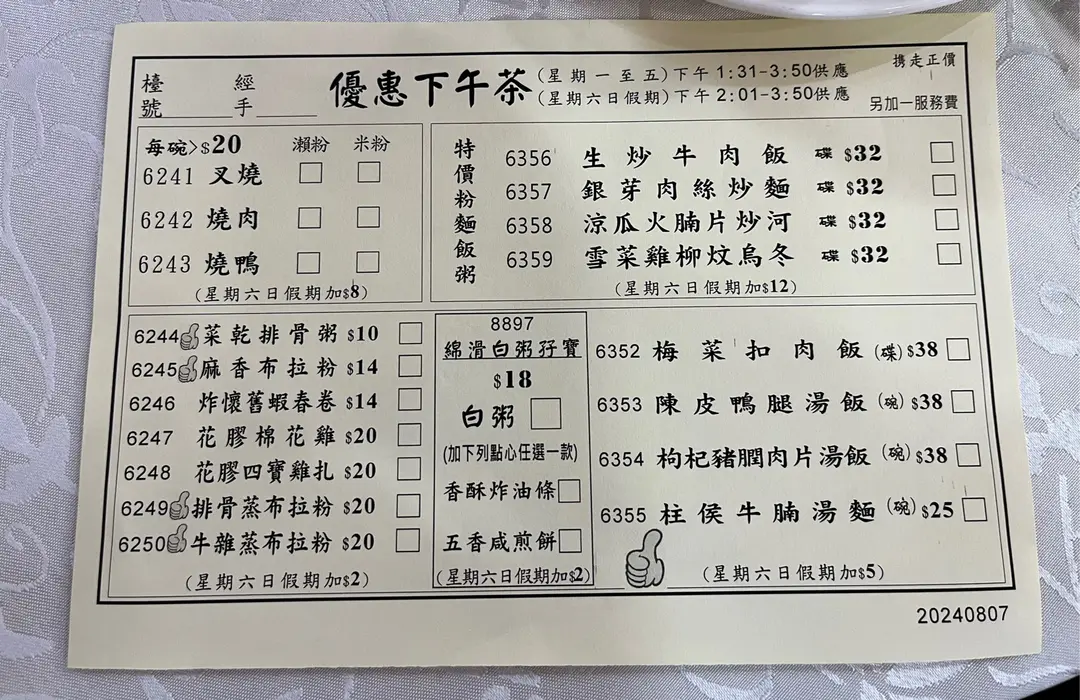 檯號______ 經手______
優惠下午茶
(星期一至五)下午1:31-3:50供應
(星期六日假期)下午2:01-3:50供應
携走正價
另加一服務費
每碗>$20 瀨粉 米粉
6241 叉燒
6242 燒肉
6243 燒鴨
(星期六日假期加$8)
特價粉麵飯粥
6356 生炒牛肉飯 碟 $32
6357 銀芽肉絲炒麵 碟 $32
6358 涼瓜火腩片炒河 碟 $32
6359 雪菜雞柳炆烏冬 碟 $32
(星期六日假期加$12)
6244 菜乾排骨粥 $10
6245 麻香布拉粉 $14
6246 炸懷舊蝦春卷 $14
6247 花膠棉花雞 $20
6248 花膠四寶雞扎 $20
6249 排骨蒸布拉粉 $20
6250 牛雜蒸布拉粉 $20
(星期六日假期加$2)
8897
綿滑白粥孖寶
$18
白粥
(加下列點心任選一款)
香酥炸油條
五香咸煎餅
(星期六日假期加$2)
6352 梅菜扣肉飯 (碟) $38
6353 陳皮鴨腿湯飯 (碗) $38
6354 枸杞豬膶肉片湯飯 (碗) $38
6355 柱侯牛腩湯麵 (碗) $25
(星期六日假期加$5)
20240807